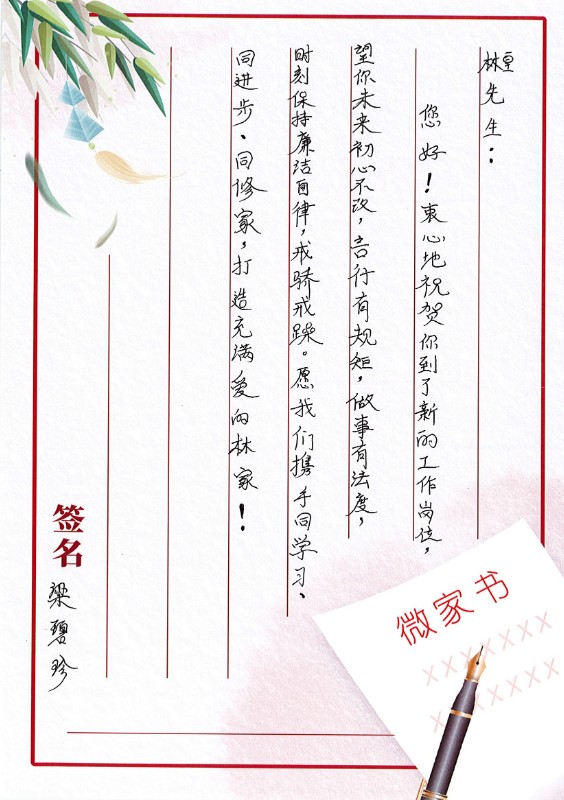 林先生：
您好！衷心地祝贺你到了新的工作岗位，
望你未来初心不改，言行有规矩，做事有法度，
时刻保持廉洁自律，戒骄戒躁。愿我们携手同学习、
同进步、同修家，打造充满爱的林家！
签名
梁碧珍
微家书
XXXXXXX
XXXXXXX